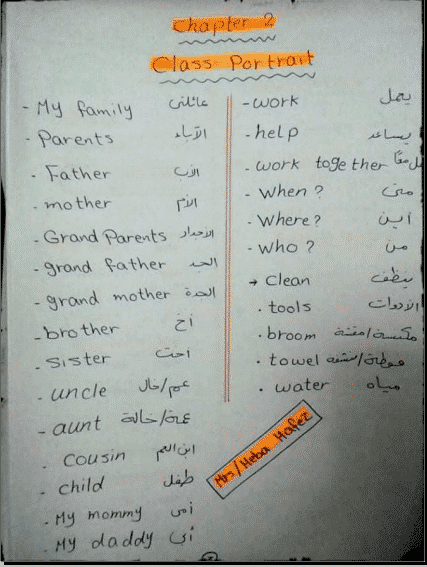 Chapter 2
Class Portrait
- My family عائلتى
- Parents الآباء
- Father الأب
- mother الأم
- Grand Parents الأجداد
- grand father الجد
- grand mother الجدة
- brother أخ
- sister اخت
- uncle عم/خال
- aunt عمة/خالة
- cousin ابن العم
- child طفل
- My mommy أمى
- My daddy أبى
- work يعمل
- help يساعد
- work together معًا
- When? متى
- Where? أين
- Who? من
→ Clean ينظف
. tools الأدوات
. broom مكنسة/مقشة
. towel فوطة/منشفة
. water مياه
Mrs/Heba Hafez